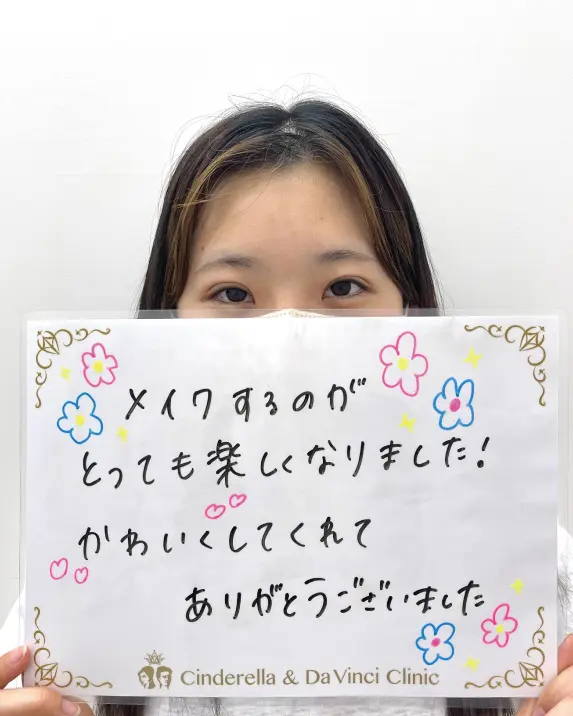 メイクするのが
とっても楽しくなりました!
かわいくしてくれて
ありがとうございました
Cinderella & Da Vinci Clinic